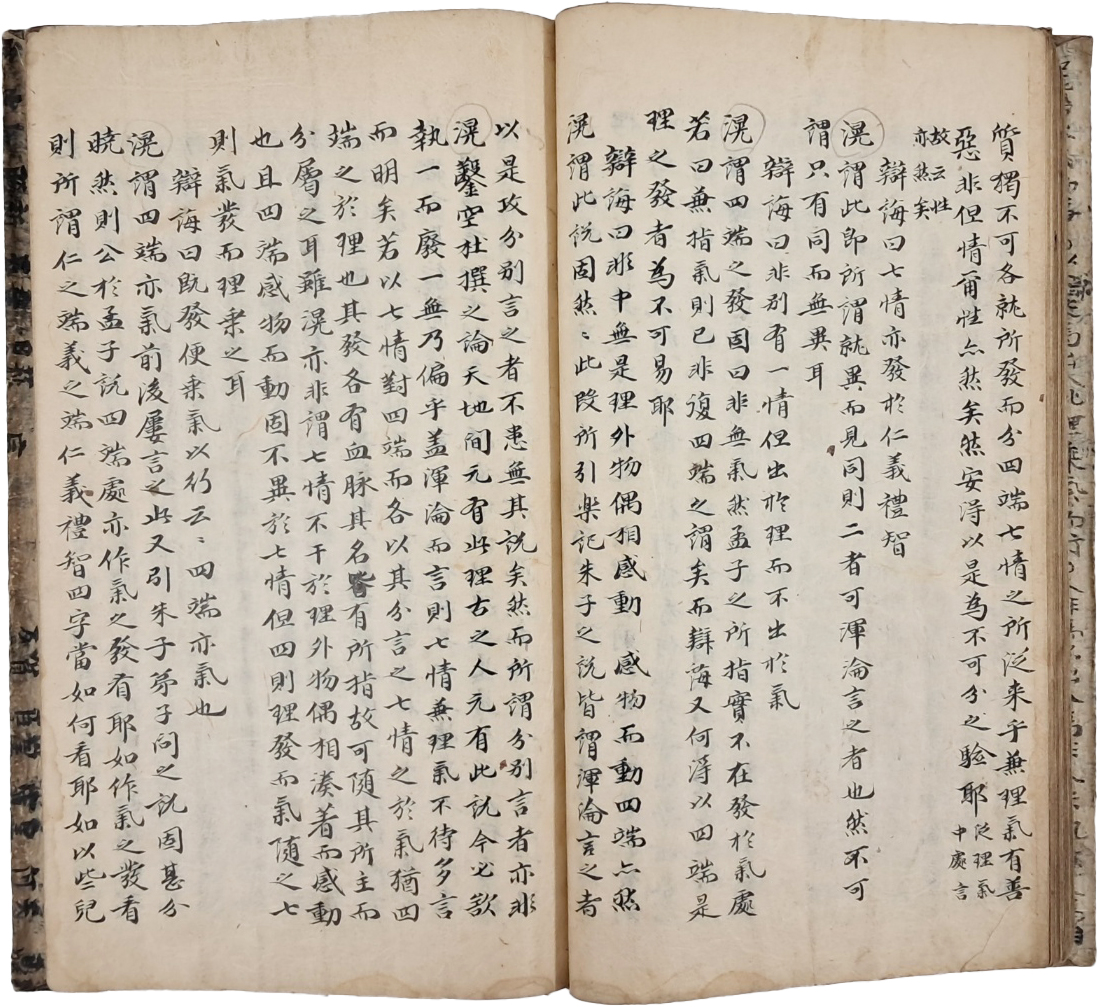 質獨不可各就所發而分四端七情之所泛来乎兼理氣有善
惡非但情爾性亦然矣然安淂以是為不可分之驗耶泛理氣中處言
故云性亦然矣
辯誨曰七情亦發於仁義禮智
滉謂此即所謂就異而見同則二者可渾淪言之者也然不可
謂只有同而無異耳
辯誨曰非別有一情但出於理而不出於氣
滉謂四端之發固曰非無氣然孟子之所指實不在發於氣處
若曰兼指氣則已非復四端之謂矣而辯誨又何淂以四端是
理之發者為不可易耶
辯誨曰非中無是理外物偶相感動 感物而動四端亦然
滉謂此說固然〻此段所引楽記朱子之說皆謂渾淪言之者
以是攻分別言之者不患無其說矣然而所謂分別言者亦非
滉鑿空杜撰之論天地間元有此理古之人元有此說今必欲
執一而廢一無乃偏乎盖渾淪而言則七情兼理氣不待多言
而明矣若以七情對四端而各以其分言之七情之於氣猶四
端之於理也其發各有血脉其名皆有所指故可随其所主而
分屬之耳雖滉亦非謂七情不干於理外物偶相湊著而感動
也且四端感物而動固不異於七情但四則理發而氣随之七
則氣發而理乗之耳
辯誨曰既發便乗氣以行云〻四端亦氣也
滉謂四端亦氣前後屢言之此又引朱子弟子問之說固甚分
曉然則公於孟子說四端處亦作氣之發看耶如作氣之發看
則所謂仁之端義之端仁義禮智四字當如何看耶如以些兒